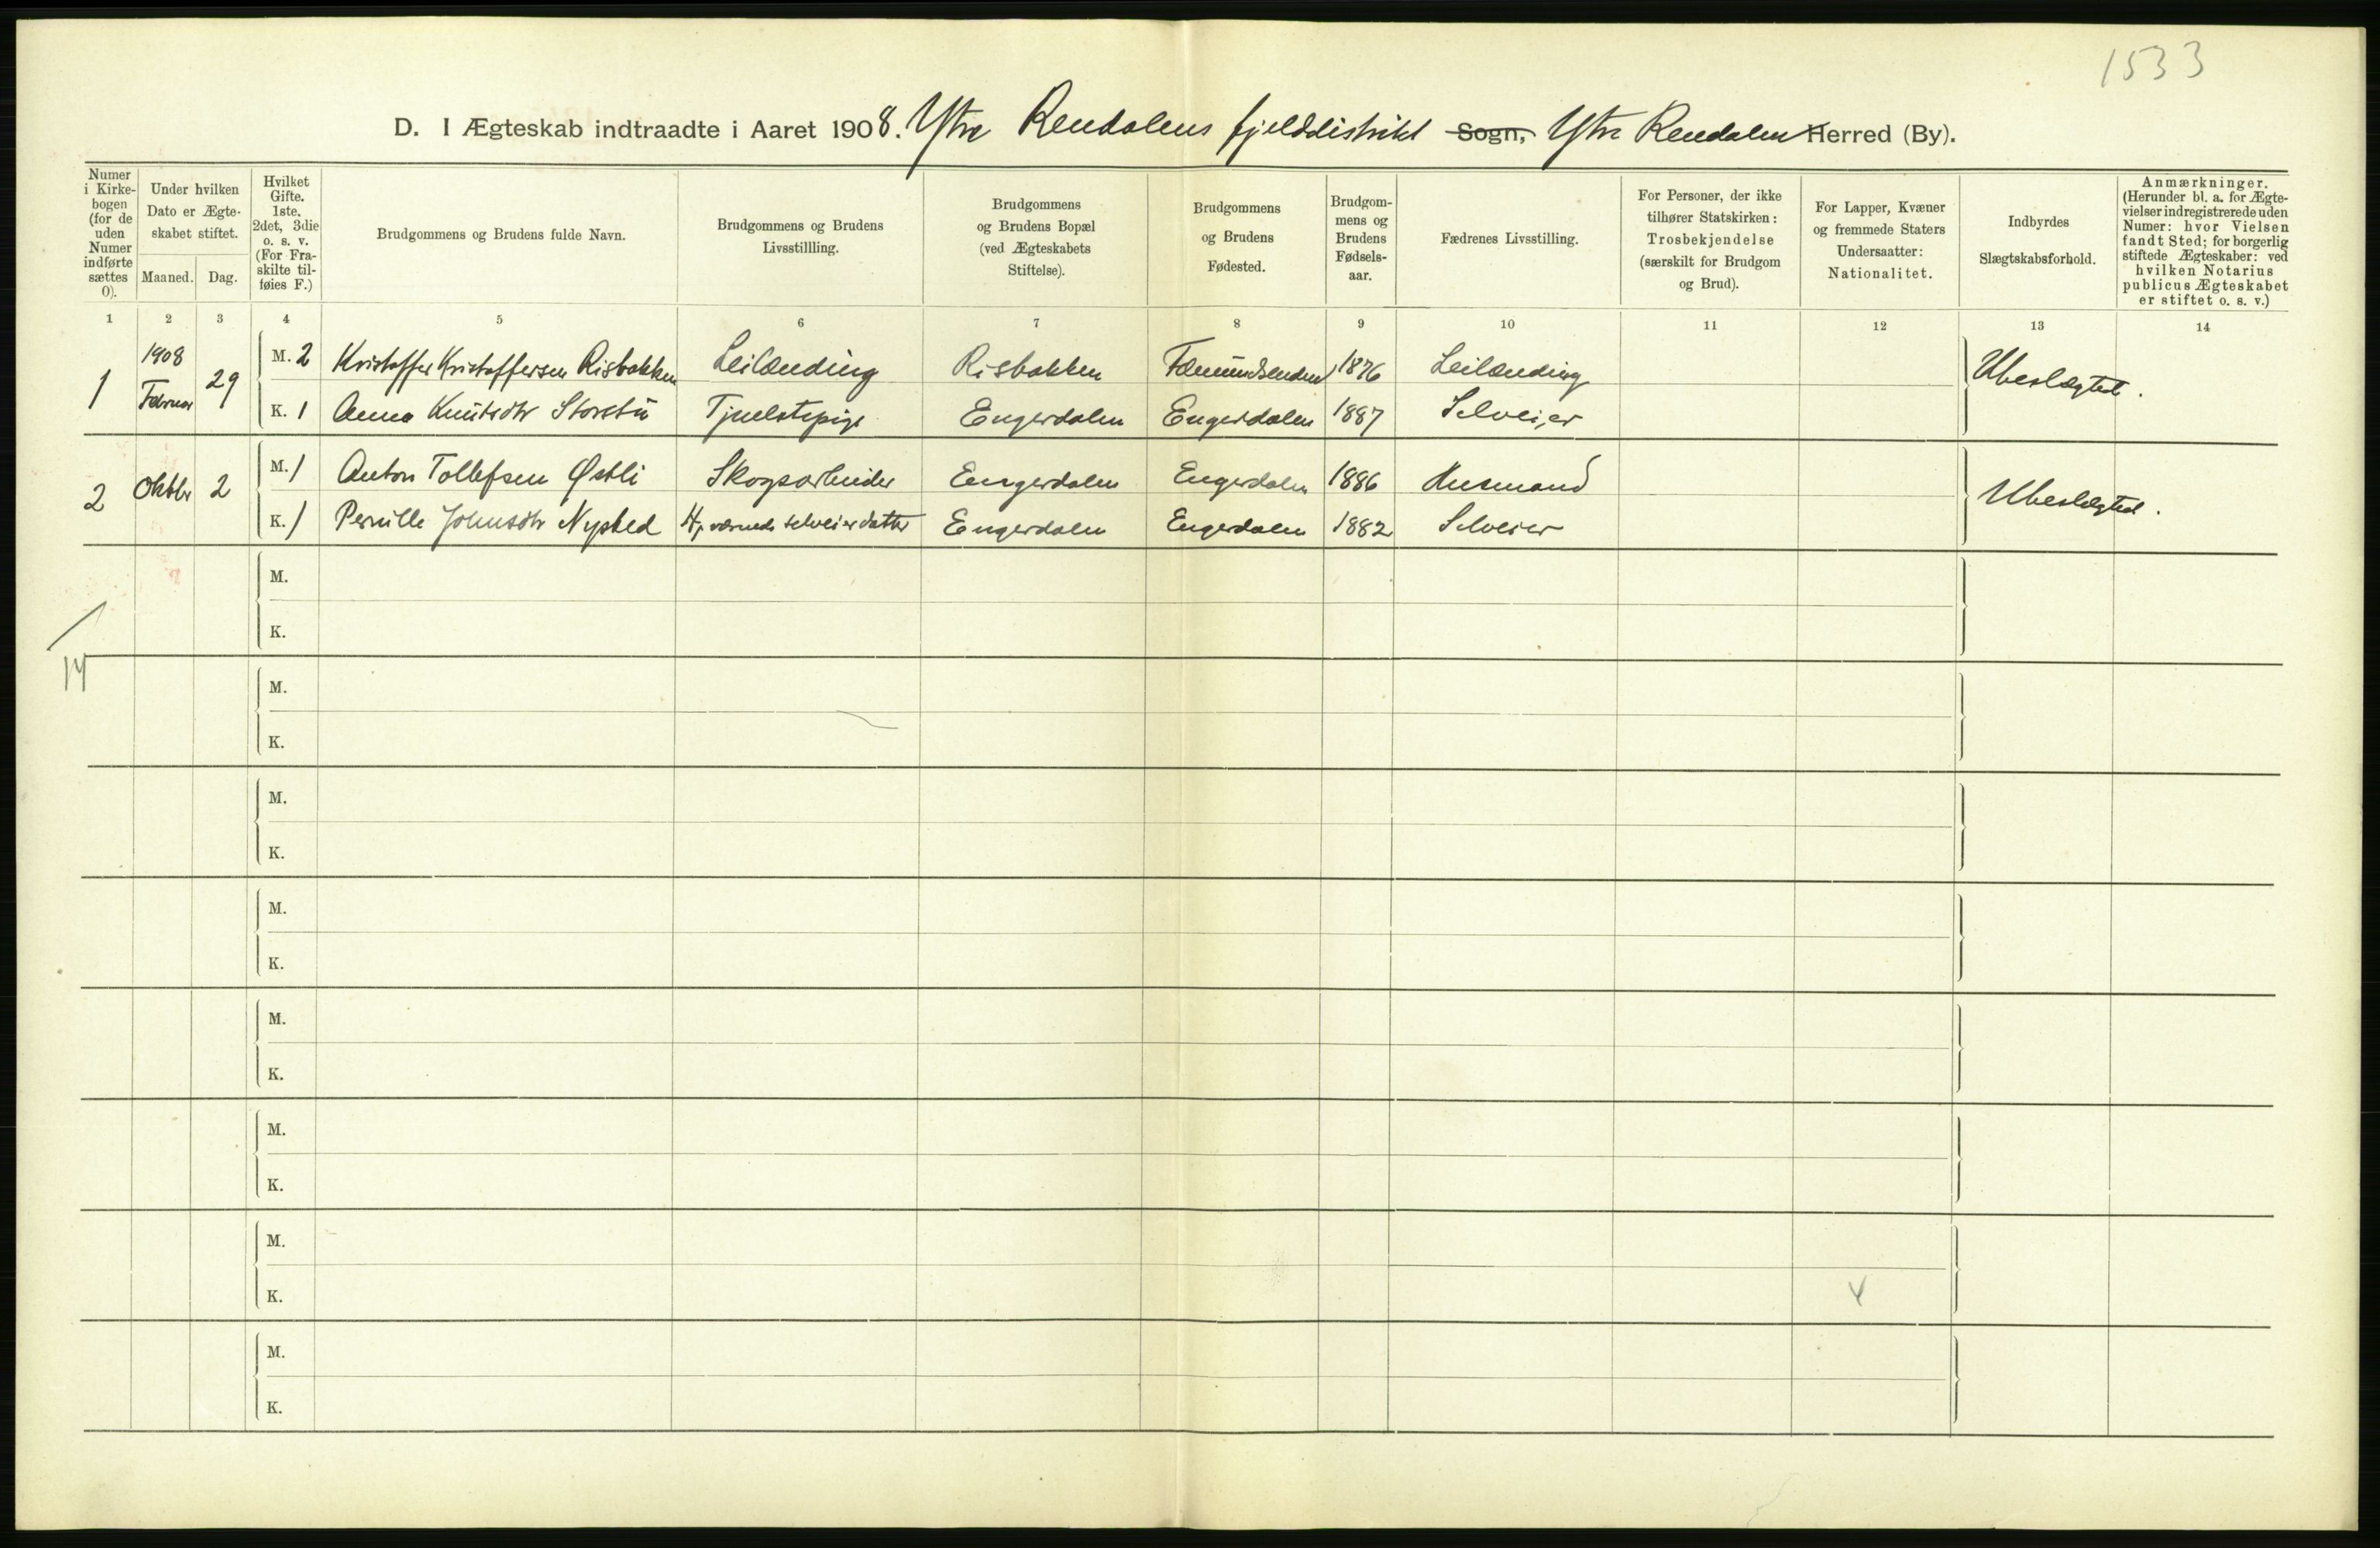 1533
D. I Ægteskab indtraadte i Aaret 1908. Ytre Rendalens fjelddistrikt Sogn, Ytre Rendalen Herred (By).
Numer i Kirkebogen (for de uden Numer indførte sættes 0).
Under hvilken Dato er Ægteskabet stiftet.
Maaned. Dag.
Hvilket Gifte. 1ste, 2det, 3die o. s. v. (For Fraskilte tilføies F.)
Brudgommens og Brudens fulde Navn.
Brudgommens og Brudens Livsstillling.
Brudgommens og Brudens Bopæl (ved Ægteskabets Stiftelse).
Brudgommens og Brudens Fødested.
Brudgommens og Brudens Fødselsaar.
Fædrenes Livsstilling.
For Personer, der ikke tilhører Statskirken: Trosbekjendelse (særskilt for Brudgom og Brud).
For Lapper, Kvæner og fremmede Staters Undersaatter: Nationalitet.
Indbyrdes Slægtskabsforhold.
Anmærkninger. (Herunder bl. a. for Ægtevielser indregistrerede uden Numer: hvor Vielsen fandt Sted; for borgerlig stiftede Ægteskaber: ved hvilken Notarius publicus Ægteskabet er stiftet o. s. v.)
1 2 3 4 5 6 7 8 9 10 11 12 13 14
1 1908 Februar 29 M. 2 Kristoffer Kristoffersen Risbakken Leilænding Risbakken Fæmundsenden 1876 Leilænding Ubeslægtet.
K. 1 Anna Knutsdtr Storstu Tjenestepige Engerdalen Engerdalen 1887 Selveier
2 Oktbr 2 M. 1 Anton Tollefsen Østli Skogsarbeider Engerdalen Engerdalen 1886 Husmand Ubeslægtet.
K. 1 Pernille Johnsdtr Nysted Hjemværende selveierdatter Engerdalen Engerdalen 1882 Selveier
M.
K.
14
M.
K.
M.
K.
M.
K.
M.
K.
M.
K.
M.
K.
M.
K.